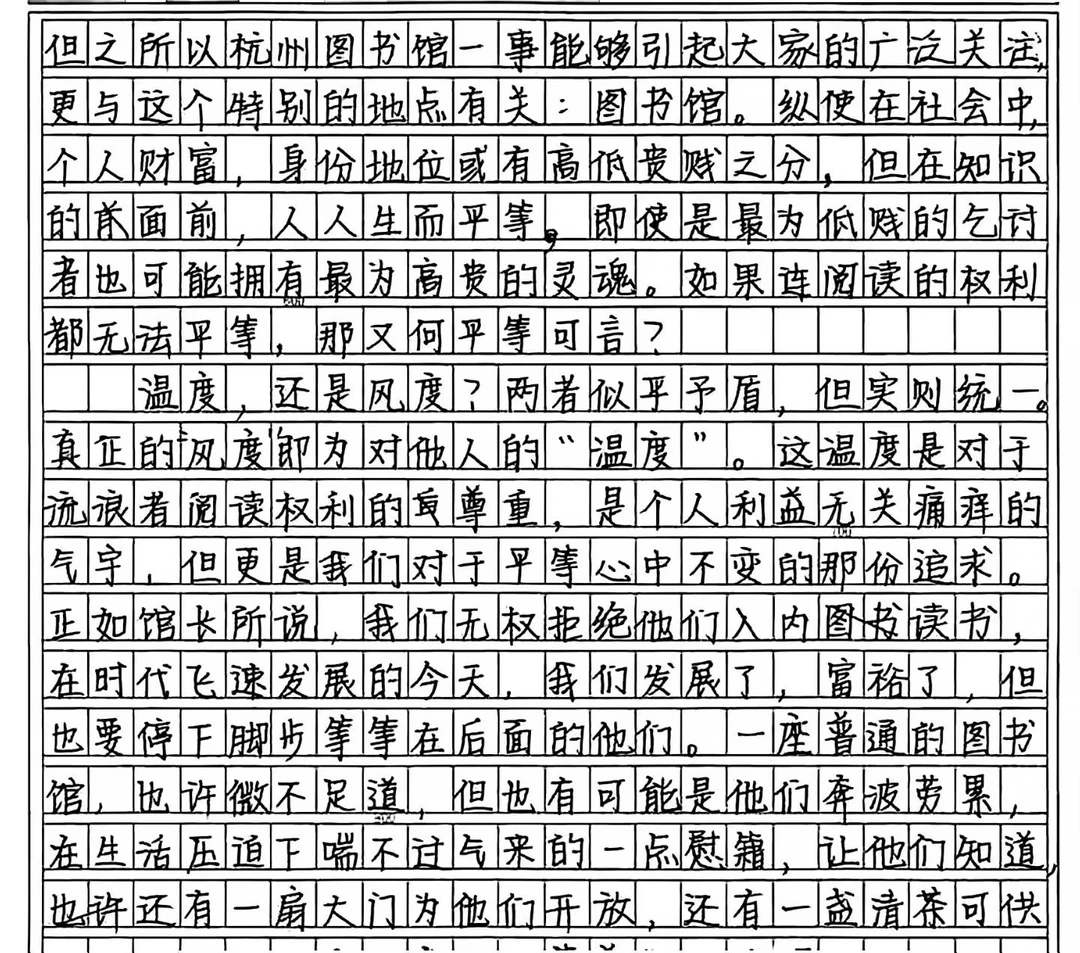 但之所以杭州图书馆一事能够引起大家的广泛关注,
更与这个特别的地点有关：图书馆。纵使在社会中,
个人财富，身份地位或有高低贵贱之分，但在知识
的面前，人人生而平等。即使是最为低贱的乞讨
者也可能拥有最为高贵的灵魂。如果连阅读的权利
都无法平等，那又何平等可言？
温度，还是风度？两者似乎予盾，但实则统一。
真正的“风度”即为对他人的“温度”。这温度是对于
流浪者阅读权利的尊重，是个人利益无关痛痒的
气宇，但更是我们对于平等心中不变的那份追求。
正如馆长所说，我们无权拒绝他们入内图书读书，
在时代飞速发展的今天，我们发展了，富裕了，但
也要停下脚步等等在后面的他们。一座普通的图书
馆，也许微不足道，但也有可能是他们奔波劳累，
在生活压迫下喘不过气来的一点慰籍，让他们知道,
也许还有一扇大门为他们开放，还有一盏清茶可供